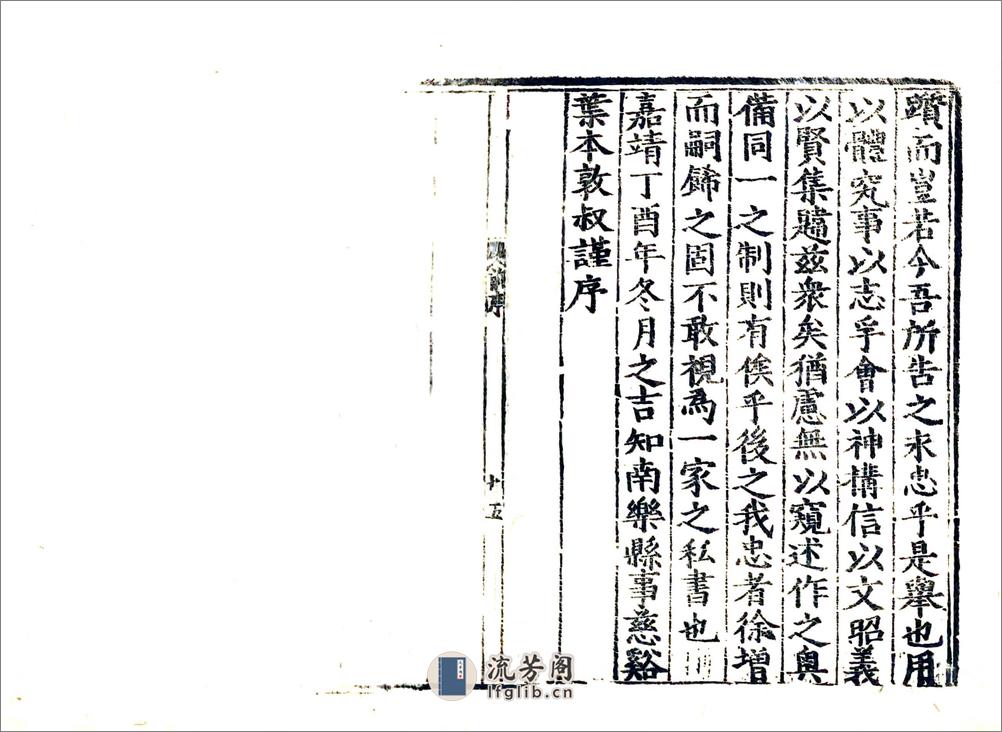 蹟而豈若今吾所告之求忠乎是舉也用
以體究事以志孚會以神構信以文昭義
以賢集躚兹衆矣猶慮無以窺述作之奥
備同一之制則有俟乎後之我忠者徐增
而嗣餙之固不敢視爲一家之私書也
嘉靖丁酉年冬月之吉知南樂縣事慈谿
葉本敦叔謹序
序
十五
流芳阁
lfglib.cn